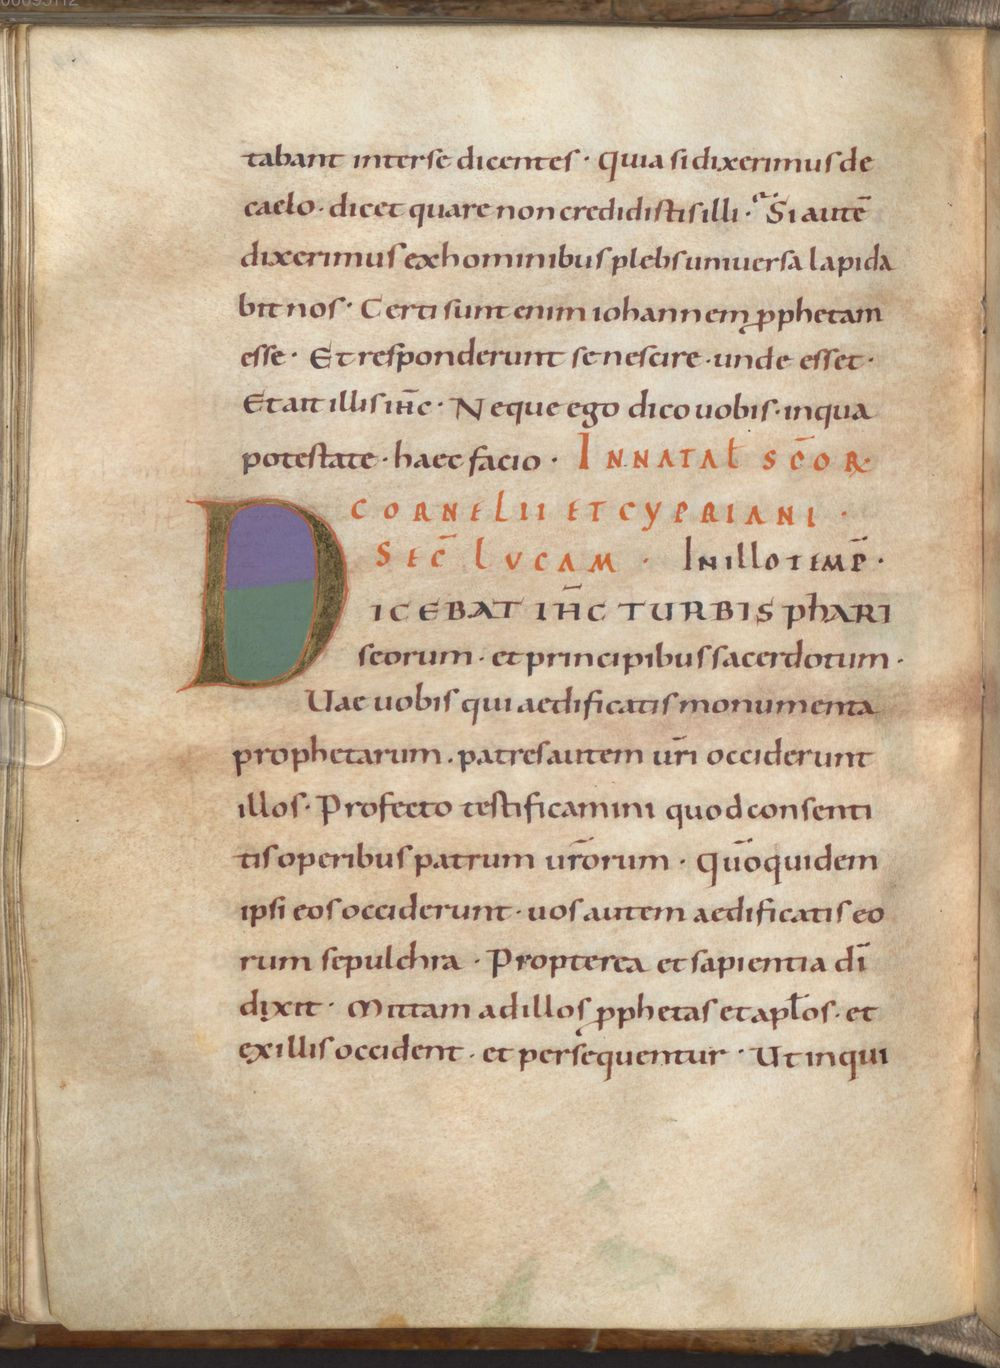 tabant inter se dicentes · Quia si dixerimus de
caelo · dicet quare non credidistis illi · Si autē
dixerimus ex hominibus plebs uniuersa lapida
bit nos · Certi sunt enim iohannem ꝓphetam
esse · Et responderunt se nescire · unde esset ·
Et ait illis ih̄c · Neque ego dico uobis · in qua
potestate · haec facio · IN NATAƚ SC̄OR·
CORNELII ET CYPRIANI ·
SEC̄ LVCAM · In illo temp̄ ·
DICEBAT IH̄C TURBIS phARI
seorum · et principibus sacerdotum ·
Uae uobis qui aedificatis monumenta
prophetarum . patres autem ur̄i occiderunt
illos · Profecto testificamini quod consenti
tis operibus patrum ur̄orum · Qūo quidem
ipsi eos occiderunt · uos autem aedificatis eo
rum sepulchra · Propterea et sapientia dī
dixit · Mittam ad illos ꝓphetas et apƚos · et
ex illis occident · et persequentur · Ut inqui